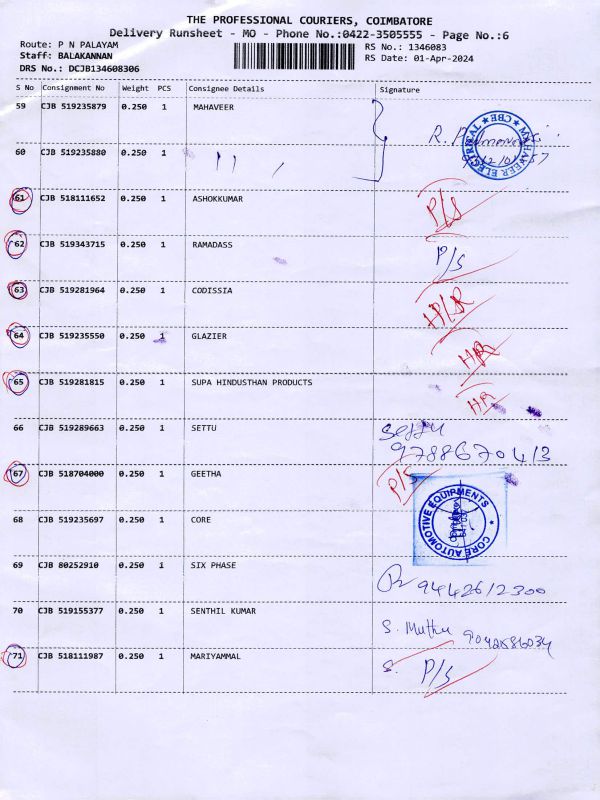 THE PROFESSIONAL COURIERS, COIMBATORE
Delivery Runsheet - MO - Phone No.:0422-3505555 - Page No.:6
Route: P N PALAYAM RS No.: 1346083
Staff: BALAKANNAN RS Date: 01-Apr-2024
DRS No.: DCJB134608306
S No Consignment No Weight PCS Consignee Details Signature
59 CJB 519235879 0.250 1 MAHAVEER
MAHAVEER ELECTRICAL ★ CBE ★
60 CJB 519235880 0.250 1
61 CJB 518111652 0.250 1 ASHOKKUMAR P/S
62 CJB 519343715 0.250 1 RAMADASS P/S
63 CJB 519281964 0.250 1 CODISSIA
64 CJB 519235550 0.250 1 GLAZIER
65 CJB 519281815 0.250 1 SUPA HINDUSTHAN PRODUCTS HR
66 CJB 519289663 0.250 1 SETTU Settu
9788670413
67 CJB 518704000 0.250 1 GEETHA P/S
68 CJB 519235697 0.250 1 CORE CORE AUTOMOTIVE EQUIPMENTS ★
69 CJB 80252910 0.250 1 SIX PHASE 9442612300
70 CJB 519155377 0.250 1 SENTHIL KUMAR S. Muthu
71 CJB 518111987 0.250 1 MARIYAMMAL S. P/S